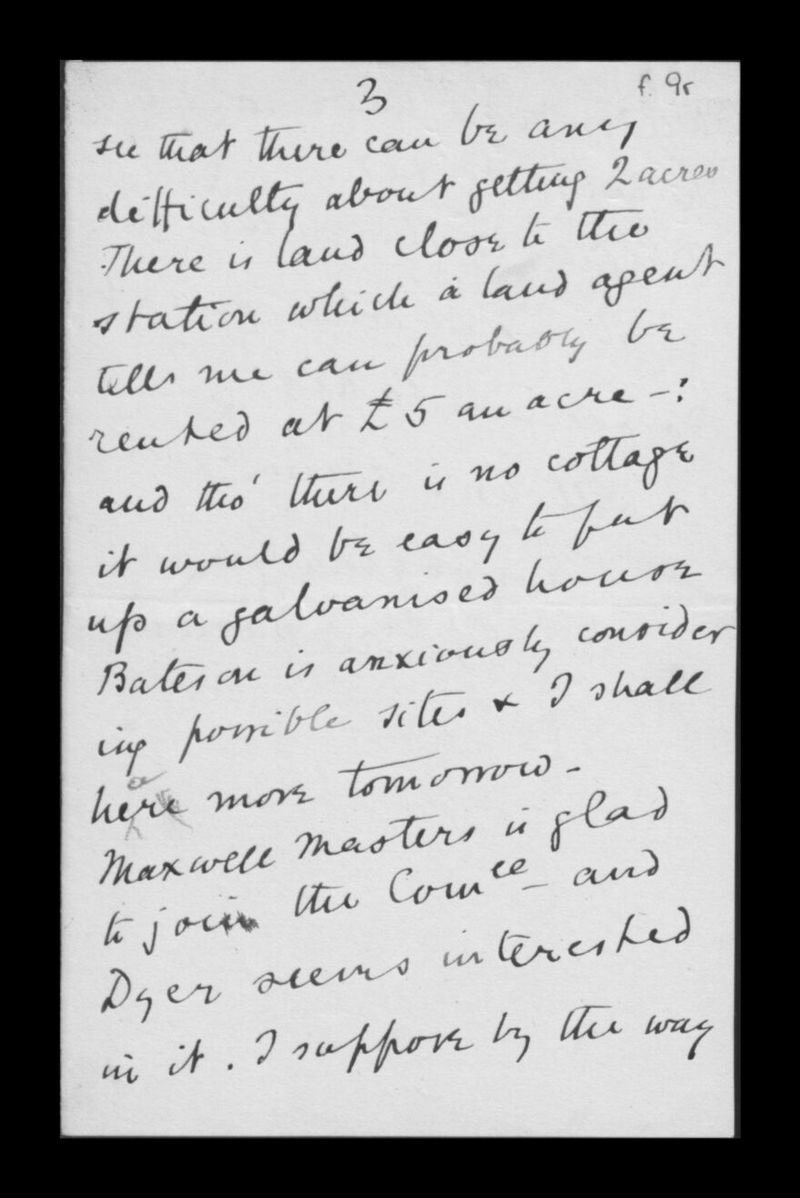 3
f. 9r
see that there can be any
difficulty about getting 2 acres
There is land close to the
station which a land agent
tells me can probably be
rented at £5 an acre -:
and tho' there is no cottage
it would be easy to put
up a galvanised house
Bateson is anxiously consider
ing possible sites & I shall
hear more tomorrow -
Maxwell Masters is glad
to join the Comee - and
Dyer seems interested
in it. I suppose by the way